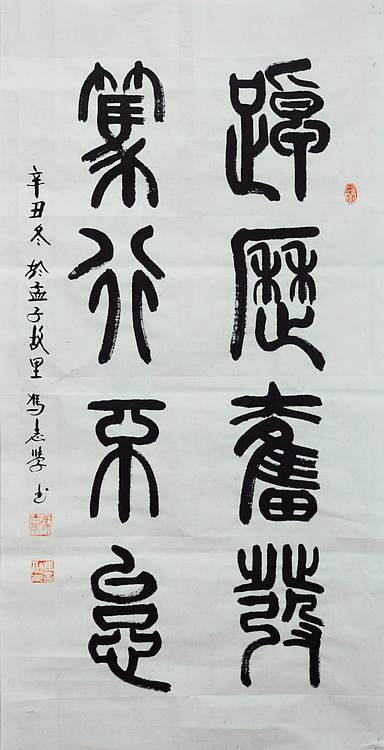 踔歷奮發
篤行不怠
辛丑冬於孟子故里馮志學书